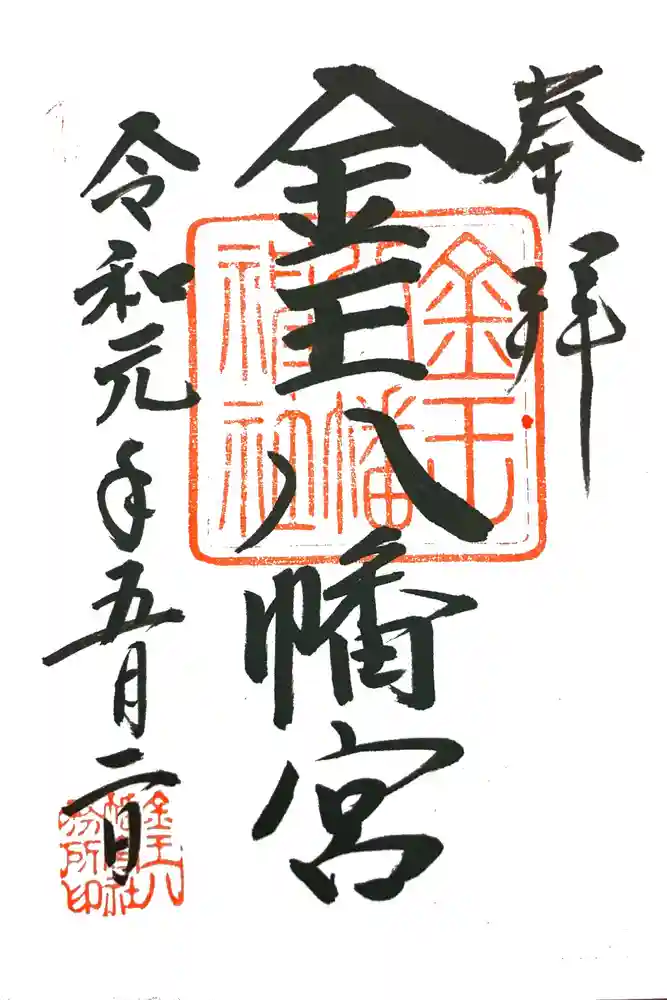 奉拝
金王八幡宮
金王
八幡
神社
令和元年五月二日
金王八
幡神社
務所印